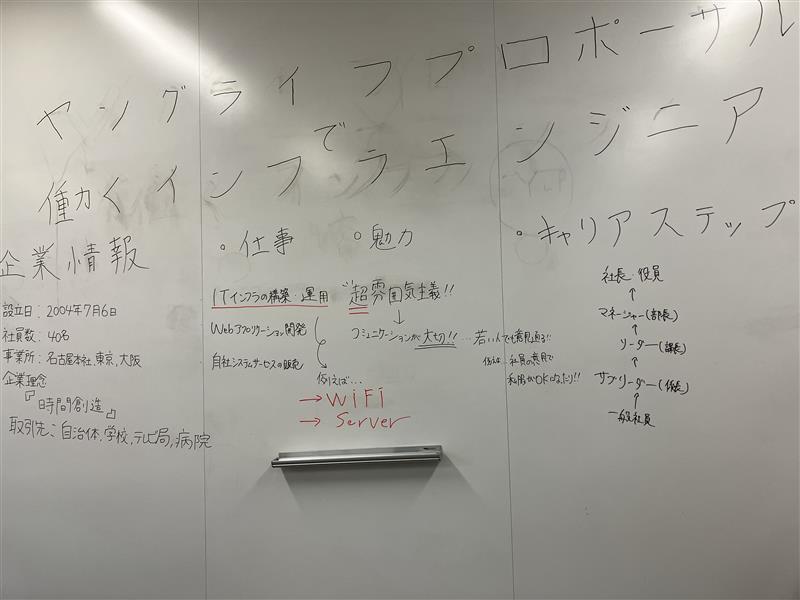 ヤングライフプロポーサル
で
働くインフラエンジニア
企業情報
設立日：2004年7月6日
社員数：40名
事業所：名古屋本社、東京、大阪
企業理念
『時間創造』
取引先：自治体、学校、テレビ局、病院
・仕事
ITインフラの構築・運用
Webアプリケーション開発
自社システムサービスの販売
例えば…
→WiFi
→Server
・魅力
"超雰囲気主義!!
↓
コミュニケーションが大切!!…若い人でも意見通る!!
例えば 社員の意見で
私服がOKになったり!!
・キャリアステップ
社長・役員
↑
マネージャー(部長)
↑
リーダー(課長)
↑
サブリーダー(係長)
↑
一般社員